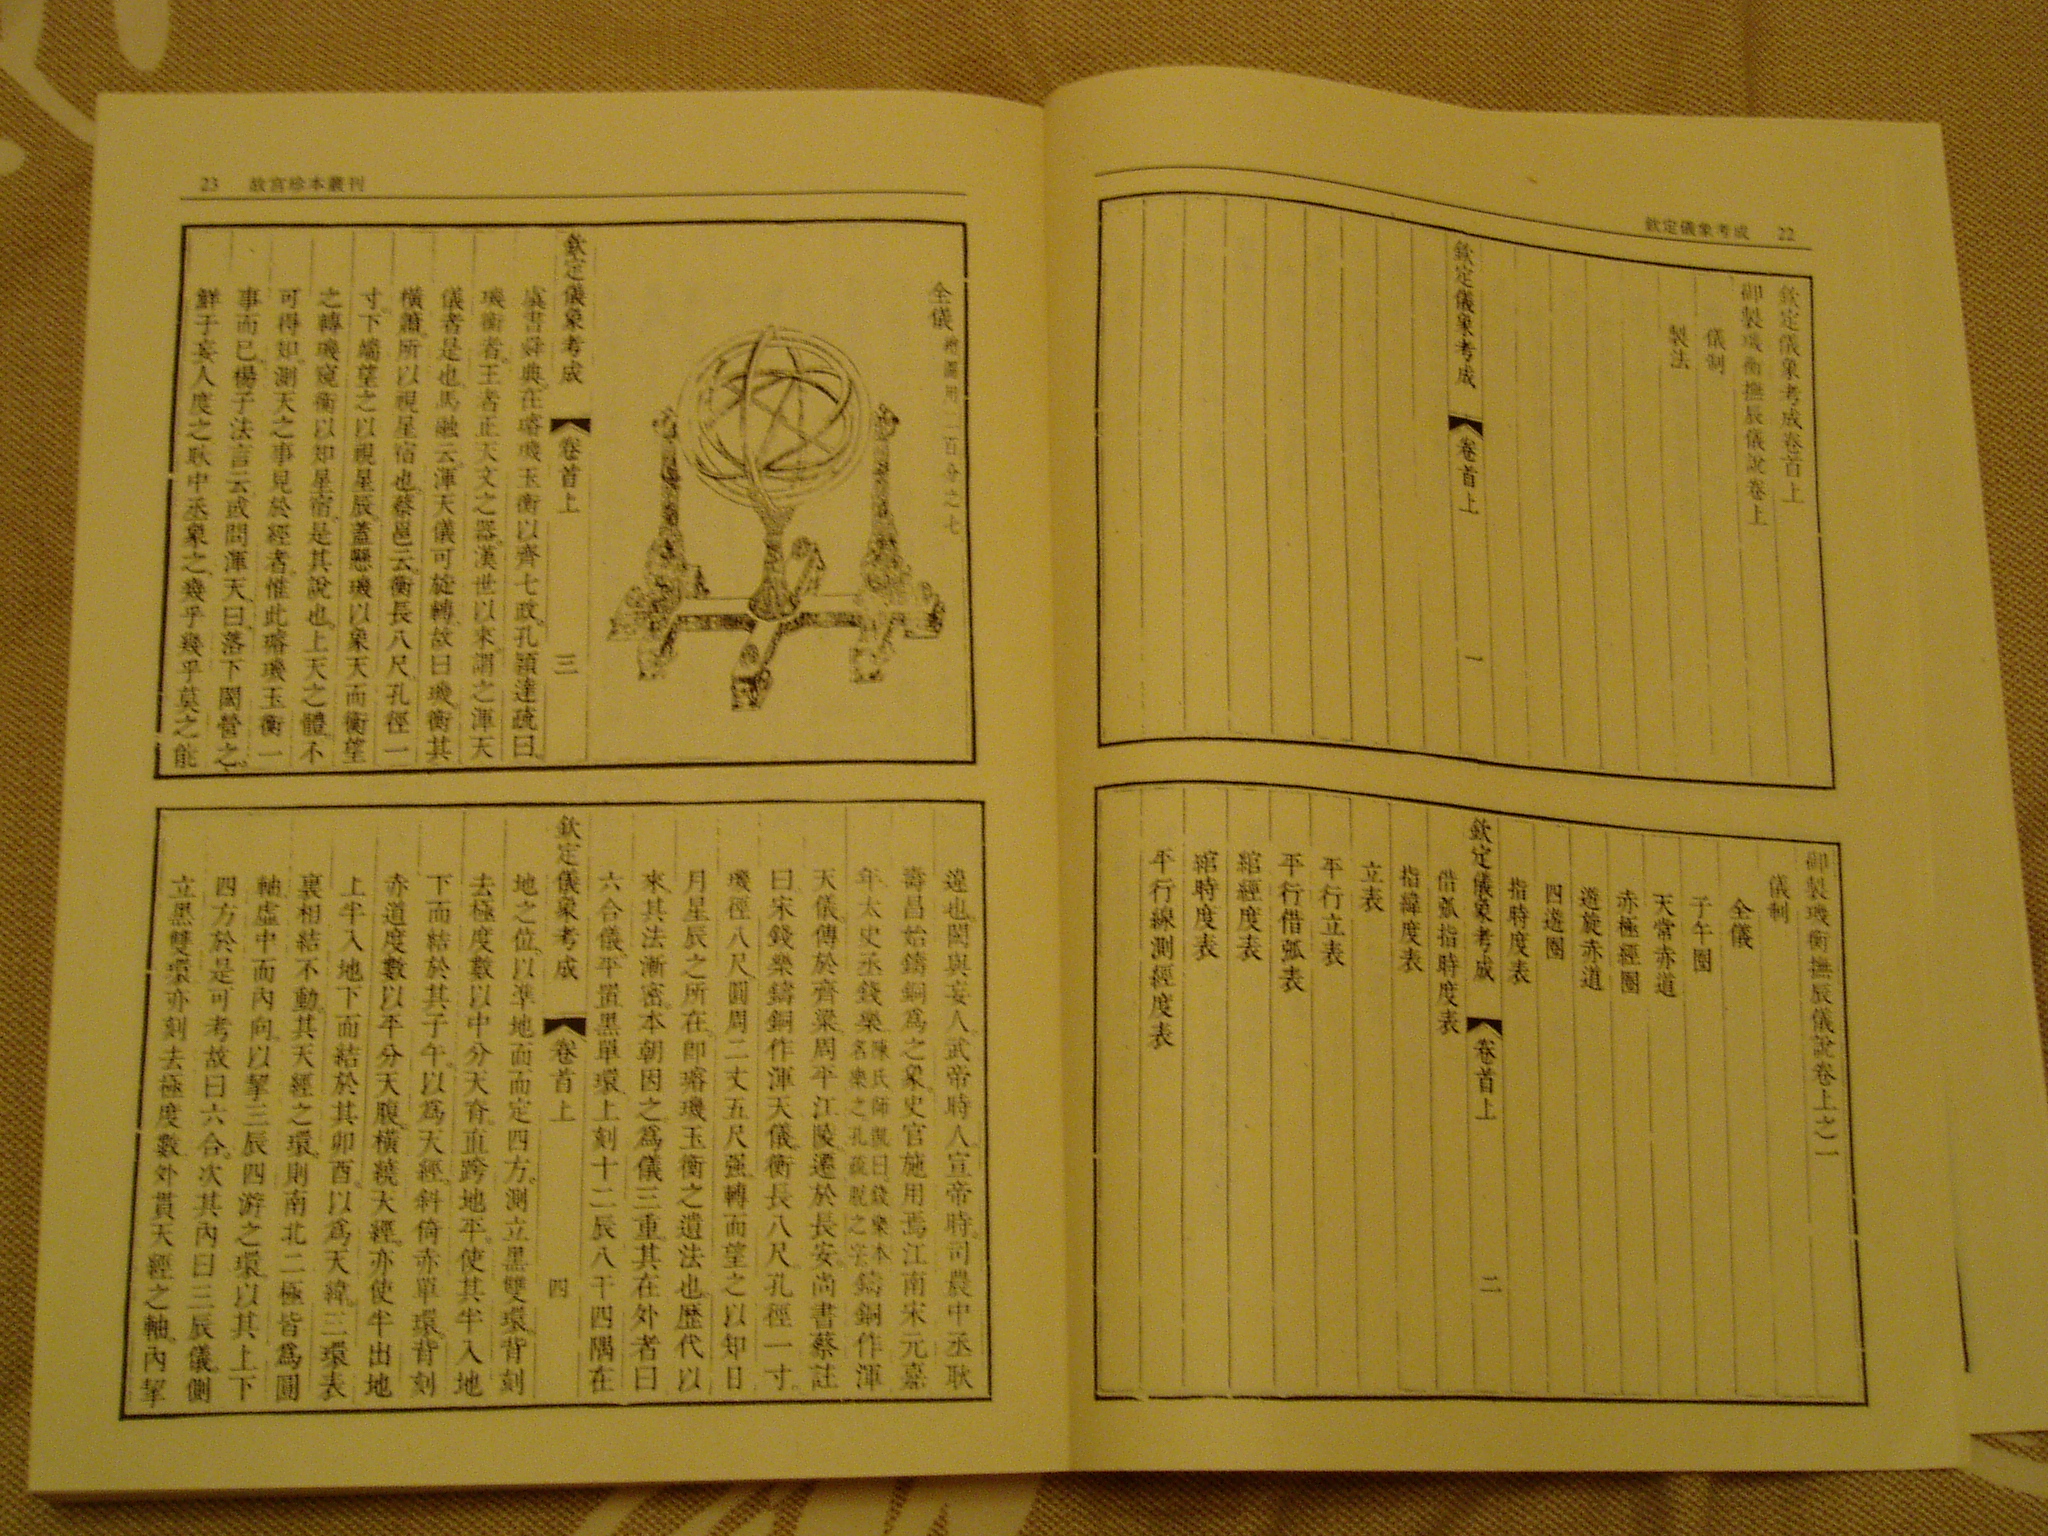 欽定儀象考成 22
欽定儀象考成卷首上
御製璣衡撫辰儀說卷上
儀制
製法
欽定儀象考成 卷首上 一
御製璣衡撫辰儀說卷上之一
儀制
全儀
子午圈
天常赤道
赤極經圈
遊旋赤道
四遊圈
指時度表
欽定儀象考成 卷首上 二
借弧指時度表
指緯度表
立表
平行立表
平行借弧表
綰經度表
綰時度表
平行線測經度表
23 故宮珍本叢刊
全儀 繪圖用一百分之七
欽定儀象考成 卷首上 三
虞書舜典在璿璣玉衡以齊七政孔穎達疏曰
璣衡者王者正天文之器漢世以來謂之渾天
儀者是也馬融云渾天儀可旋轉故曰璣衡其
橫簫所以視星宿也蔡邕云衡長八尺孔徑一
寸下端望之以視星辰蓋懸璣以象天而衡望
之轉璣窺衡以知星宿是其說也上天之體不
可得知測天之事見於經者惟此璿璣玉衡一
事而已楊子法言云或問渾天曰落下閎營之
鮮于妄人度之耿中丞象之幾乎幾乎莫之能
違也閎與妄人武帝時人宣帝時司農中丞耿
壽昌始鑄銅為之象史官施用焉江南宋元嘉
年太史丞錢樂 陳氏師凱曰錢樂本名樂之孔疏脫之字 鑄銅作渾
天儀傳於齊梁周平江陵遷於長安尚書蔡註
曰宋錢樂鑄銅作渾天儀衡長八尺孔徑一寸
璣徑八尺圓周二丈五尺强轉而望之以知日
月星辰之所在即璿璣玉衡之遺法也歷代以
來其法漸密本朝因之為儀三重其在外者曰
六合儀平置黑單環上刻十二辰八干四隅在
欽定儀象考成 卷首上 四
地之位以準地面而定四方測立黑雙環背刻
去極度數以中分天脊直跨地平使其半入地
下而結於其子午以為天經斜倚赤單環背刻
赤道度數以平分天腹橫繞天經亦使半出地
上半入地下而結於其卯酉以為天緯三環表
裏相結不動其天經之環則南北二極皆為圓
軸虛中而內向以挈三辰四游之環以其上下
四方於是可考故曰六合次其內曰三辰儀側
立黑雙環亦刻去極度數外貫天經之軸內挈